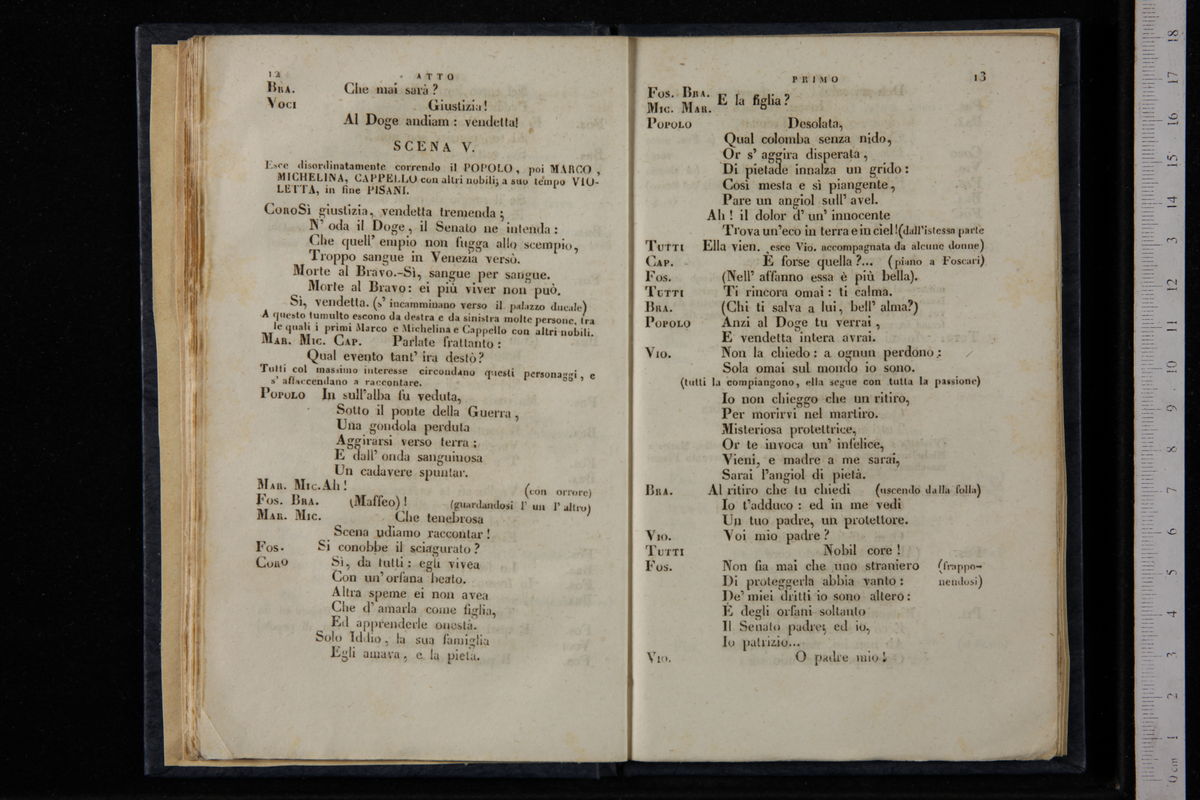 12 ATTO
BRA. Che mai sarà?
VOCI Giustizia!
Al Doge andiam: vendetta!
SCENA V.
Esce disordinatamente correndo il POPOLO, poi MARCO,
MICHELINA, CAPPELLO con altri nobili; a suo tempo VIO-
LETTA, in fine PISANI.
CORO Sì giustizia, vendetta tremenda;
N' oda il Doge, il Senato ne intenda:
Che quell' empio non fugga allo scempio,
Troppo sangue in Venezia versò.
Morte al Bravo.-Sì, sangue per sangue.
Morte al Bravo: ei più viver non può.
Sì, vendetta. (s' incamminano verso il palazzo ducale)
A questo tumulto escono da destra e da sinistra molte persone, tra
le quali i primi Marco e Michelina e Cappello con altri nobili.
MAR. MIC. CAP. Parlate frattanto:
Qual evento tant' ira destò?
Tutti col massimo interesse circondano questi personaggi, e
s' affaccendano a raccontare.
POPOLO In sull'alba fu veduta,
Sotto il ponte della Guerra,
Una gondola perduta
Aggirarsi verso terra;
E dall' onda sanguinosa
Un cadavere spuntar.
MAR. MIC. Ah! (con orrore)
FOS. BRA. (Maffeo)! (guardandosi l' un l' altro)
MAR. MIC. Che tenebrosa
Scena udiamo raccontar!
FOS. Si conobbe il sciagurato?
CORO Sì, da tutti: egli vivea
Con un' orfana beato.
Altra speme ei non avea
Che d' amarla come figlia,
Ed apprenderle onestà.
Solo Iddio, la sua famiglia
Egli amava, e la pietà.
PRIMO 13
FOS. BRA.
MIC. MAR. E la figlia?
POPOLO Desolata,
Qual colomba senza nido,
Or s' aggira disperata,
Di pietade innalza un grido:
Così mesta e sì piangente,
Pare un angiol sull' avel.
Ah! il dolor d' un' innocente
Trova un'eco in terra e in ciel! (dall'istessa parte
TUTTI Ella vien. esce Vio. accompagnata da alcune donne)
CAP. È forse quella?... (piano a Foscari)
FOS. (Nell' affanno essa è più bella).
TUTTI Ti rincora omai: ti calma.
BRA. (Chi ti salva a lui, bell' alma?)
POPOLO Anzi al Doge tu verrai,
E vendetta intera avrai.
VIO. Non la chiedo: a ognun perdono:
Sola omai sul mondo io sono.
(tutti la compiangono, ella segue con tutta la passione)
Io non chieggo che un ritiro,
Per morirvi nel martiro.
Misteriosa protettrice,
Or te invoca un' infelice,
Vieni, e madre a me sarai,
Sarai l'angiol di pietà.
BRA. Al ritiro che tu chiedi (uscendo dalla folla)
Io t'adduco: ed in me vedi
Un tuo padre, un protettore.
VIO. Voi mio padre?
TUTTI Nobil core!
FOS. Non fia mai che uno straniero (frappo-
Di proteggerla abbia vanto: nendosi)
De' miei dritti io sono altero:
È degli orfani soltanto
Il Senato padre; ed io,
Io patrizio...
VIO. O padre mio!
0 cm 1 2 3 4 5 6 7 8 9 10 11 12 13 14 15 16 17 18